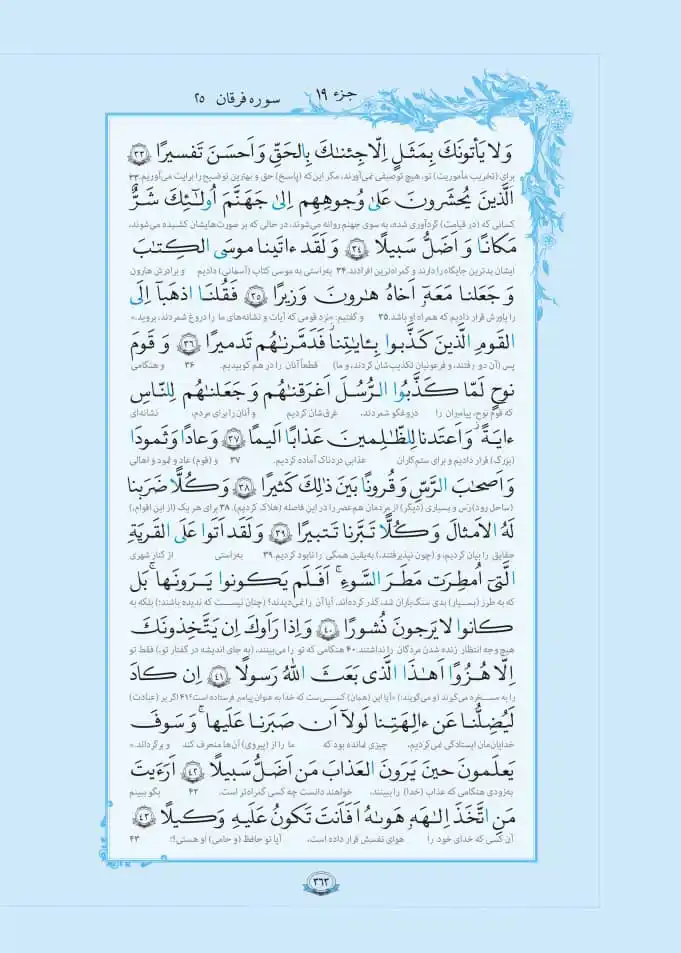 جزء ۱۹
سوره فرقان ۲۵
وَ لا يَأتونَكَ بِمَثَلٍ اِلّا جِئنٰكَ بِالحَقِّ وَ اَحسَنَ تَفسيرًا ﴿۳۳﴾
برای (تخریب مأموریت) تو، هیچ توصیفی نمی‌آورند، مگر این‌که (پاسخ) حق و بهترین توضیح را برایت می‌آوریم.۳۳
اَلَّذينَ يُحشَرونَ عَلىٰ وُجوهِهِم اِلىٰ جَهَنَّمَ اُولٰئِكَ شَرٌّ
کسانی که (در قیامت) گردآوری شده، به سوی جهنم روانه می‌شوند، در حالی که بر صورت‌هایشان کشیده می‌شوند،
مَكانًا وَ اَضَلُّ سَبيلًا ﴿۳۴﴾ وَ لَقَد ءاتَينا موسَى الكِتٰبَ
ایشان بدترین جایگاه را دارند و گمراه‌ترین افرادند.۳۴ به‌راستی به موسی کتاب (آسمانی) دادیم و برادرش هارون
وَ جَعَلنا مَعَهٗٓ اَخاهُ هٰرونَ وَزيرًا ﴿۳۵﴾ فَقُلنَا اذهَبآ اِلَى
را یاورش قرار دادیم که همراه او باشد.۳۵ و گفتیم: «نزد قومی که آیات و نشانه‌های ما را دروغ شمردند، بروید.»
القَومِ الَّذينَ كَذَّبوا بِـٔايٰتِنا فَدَمَّرنٰهُم تَدميرًا ﴿۳۶﴾ وَ قَومَ
پس (آن دو رفتند، و فرعونیان تکذیب‌شان کردند، و ما) قطعاً آنان را در هم کوبیدیم. ۳۶ و هنگامی
نوحٍ لَمّا كَذَّبُوا الرُّسُلَ اَغرَقنٰهُم وَ جَعَلنٰهُم لِلنّاسِ
که قوم نوح، پیامبران را دروغگو شمردند، غرق‌شان کردیم و آنان را برای مردم، نشانه‌ای
ءايَةً وَ اَعتَدنا لِلظّٰلِمينَ عَذابًا اَليمًا ﴿۳۷﴾ وَ عادًا وَ ثَمودَا۟
(بزرگ) قرار دادیم و برای ستم‌کاران عذابی دردناک آماده کردیم. ۳۷ و (قوم) عاد و ثمود و اهالی
وَ اَصحٰبَ الرَّسِّ وَ قُرونًا بَينَ ذٰلِكَ كَثيرًا ﴿۳۸﴾ وَ كُلًّا ضَرَبنا
(ساحل رود) رَس و بسیاری (دیگر) از مردمان هم‌عصر را در این فاصله (هلاک کردیم). ۳۸ برای هر یک (از این اقوام،)
لَهُ الاَمثالَ وَ كُلًّا تَبَّرنا تَتبيرًا ﴿۳۹﴾ وَ لَقَد اَتَوا عَلَى القَريَةِ
حقایق را بیان کردیم، و (چون نپذیرفتند،) به‌یقین همگی را نابود کردیم.۳۹ به‌راستی از کنار شهری
الَّتيٓ اُمطِرَت مَطَرَ السَّوءِ ۚ اَفَلَم يَكونوا يَرَونَها ۚ بَل
که به طرز (بسیار) بدی سنگ‌باران شد، گذر کرده‌اند. آیا آن را نمی‌دیدند؟ (چنان نیست که ندیده باشند؛) بلکه به
كانوا لا يَرجونَ نُشورًا ﴿۴۰﴾ وَ اِذا رَاَوكَ اِن يَتَّخِذونَكَ
هیچ وجه انتظار زنده شدن مردگان را نداشتند.۴۰ هنگامی که تو را می‌بینند، (به جای اندیشه در گفتار تو،) فقط تو
اِلّا هُزُوًا اَهٰذَا الَّذي بَعَثَ اللّٰهُ رَسولًا ﴿۴۱﴾ اِن كادَ
را به مسخره می‌گیرند (و می‌گویند:) «آیا این (همان) کسی‌ست که خدا به عنوان پیامبر فرستاده است؟!۴۱ اگر بر (عبادت)
لَيُضِلُّنا عَن ءالِهَتِنا لَولآ اَن صَبَرنا عَلَيها ۚ وَ سَوفَ
خدایان‌مان ایستادگی نمی‌کردیم، چیزی نمانده بود که ما را از (پیروی) آن‌ها منحرف کند و برگرداند.»
يَعلَمونَ حينَ يَرَونَ العَذابَ مَن اَضَلُّ سَبيلًا ﴿۴۲﴾ اَرَءَيتَ
به‌زودی هنگامی که عذاب (خدا) را ببینند، خواهند دانست چه کسی گمراه‌تر است. ۴۲ بگو ببینم
مَنِ اتَّخَذَ اِلٰهَهٗ هَوٰىهُ اَفَاَنتَ تَكونُ عَلَيهِ وَكيلًا ﴿۴۳﴾
آن کسی که خدای خود را هوای نفسش قرار داده است، آیا تو حافظ (و حامی) او هستی؟! ۴۳
۳۶۳